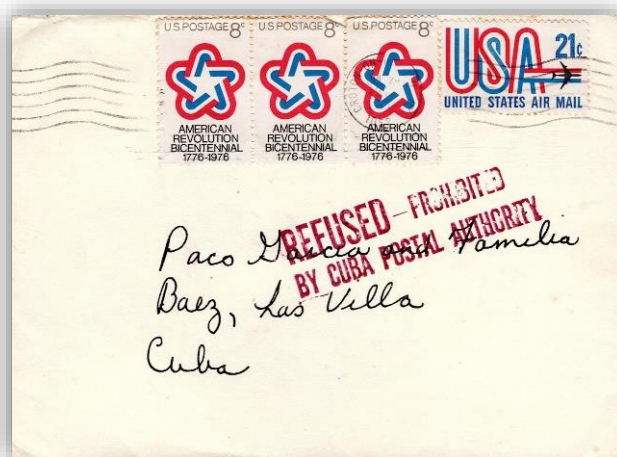 U.S. POSTAGE 8c
AMERICAN
REVOLUTION
BICENTENNIAL
1776-1976
U.S. POSTAGE 8c
AMERICAN
REVOLUTION
BICENTENNIAL
1776-1976
U.S. POSTAGE 8c
AMERICAN
REVOLUTION
BICENTENNIAL
1776-1976
USA 21c
UNITED STATES AIR MAIL
REFUSED – PROHIBITED
BY CUBA POSTAL AUTHORITY
Paco Garcia and Familia
Baez, Las Villa
Cuba